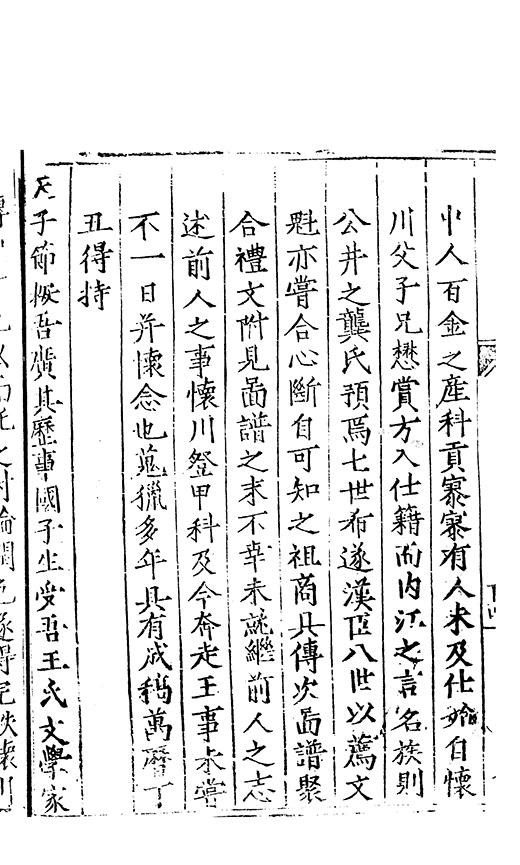 中人百金之産科貢寥寥有人未及仕始自懷
川父子兄懋賞方入仕籍而内江之言名族則
公井之龔氏預焉七世布遂漢臣八世以薦文
魁亦嘗合心斷自可知之祖商具傳次啚譜聚
合禮文附見啚譜之末不幸未就繼前人之志
述前人之事懷川登甲科及今奔走王事未嘗
不一日并懷念也蒐獵多年具有成稿萬曆丁
丑得持
天子節按吾廣其歷事國子生受吾王氏文學家